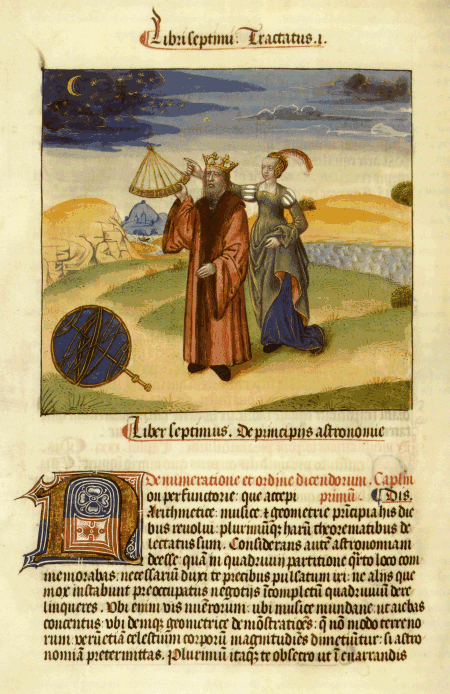 Libri septimi: Tractatus .1.
Liber septimus. De principijs astronomie
De numeratione et ordine dicendorum. Caplm
primũ. Dis.
Non perfunctorie que accepi
Arithmetice: musice & geometrie prĩcipia his die
bus revolui: plurimũqz harũ theorematibus de
lectatus sum. Considerans autẽ astronomiam
deesse: quã in quadruvii partitione q̃rto loco com
memorabas: necessariũ duxi te precibus pulsatum iri: ne alijs que
mox instabunt preoccupatus negotijs ĩcompletũ quadruviũ dere
linqueres. Ubi enim vis nũerorum: ubi musice mundane: ut aiebas
concentus: ubi demqz geometrice demõstratiões: q̃ nõ modo terreno
rum: verũetiã celestium corporũ magnitudĩes dimetiũtur: si astro
nomiã pretermittas. Plurimũ itaqz te obsecro ut ĩ enarrandis